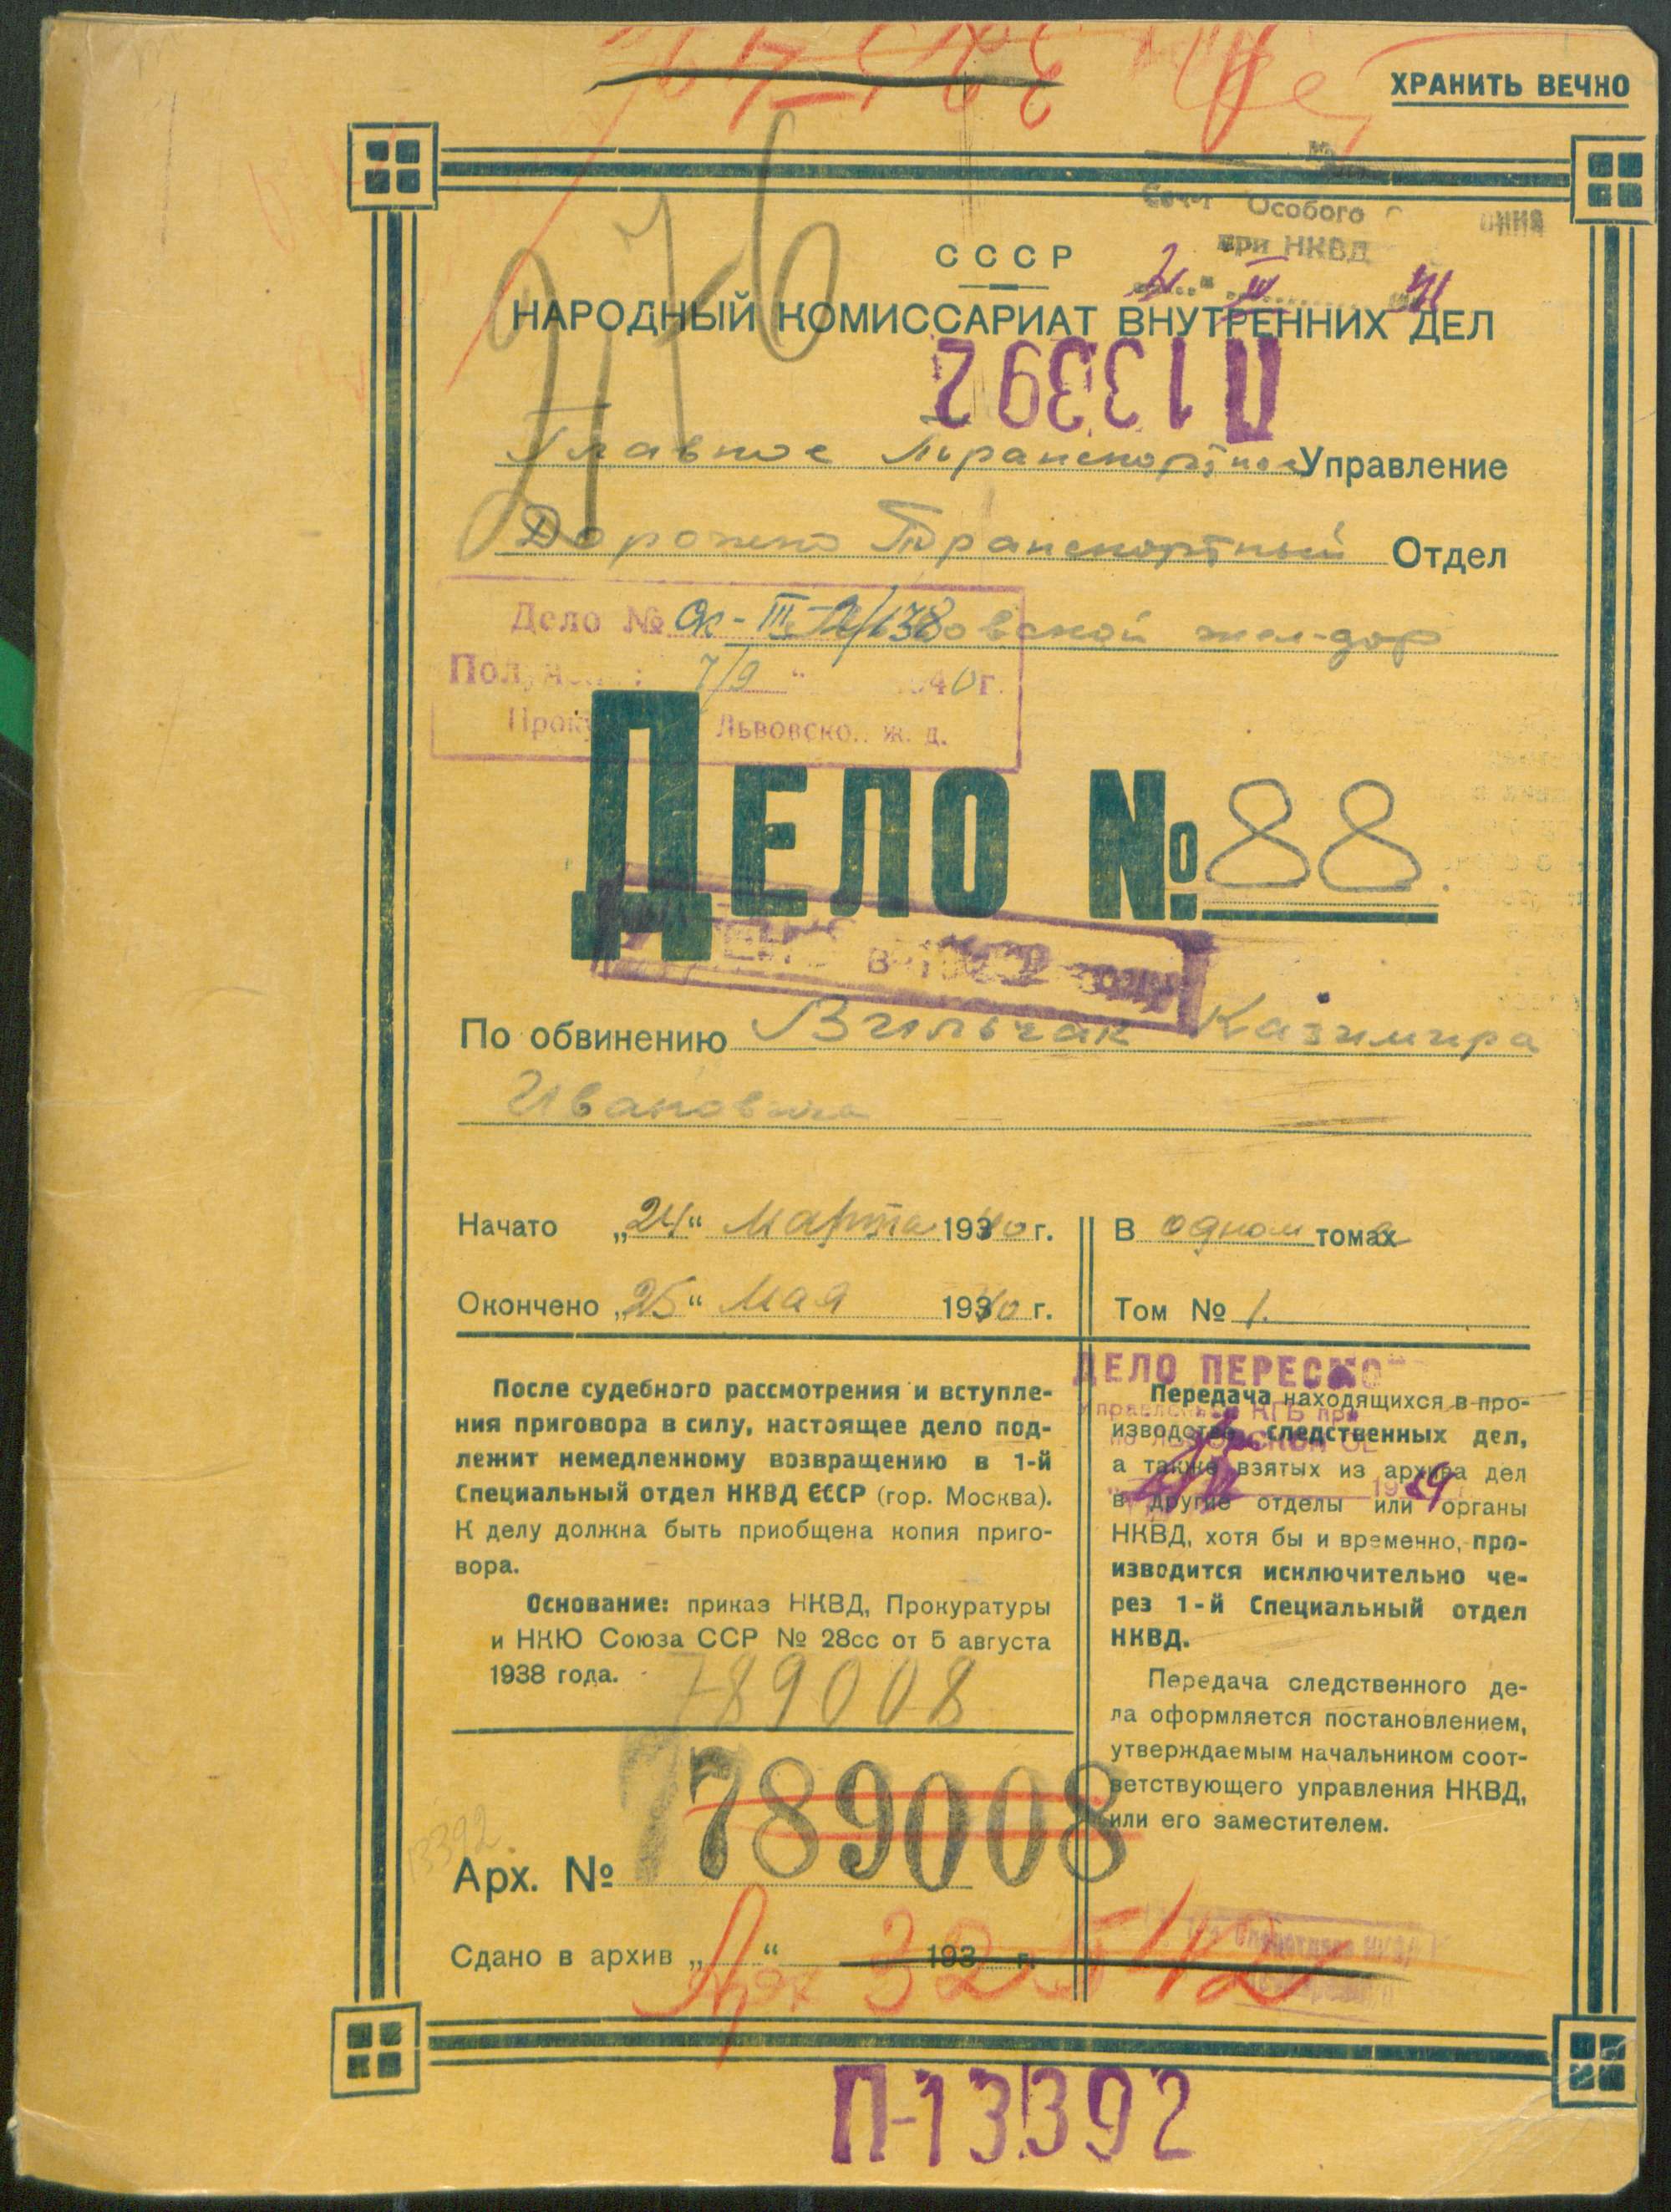 ХРАНИТЬ ВЕЧНО
Особого
при НКВД
СССР
НАРОДНЫЙ КОМИССАРИАТ ВНУТРЕННИХ ДЕЛ
П13392
Главное Транспортное Управление
Дорожно Транспортный Отдел
Дело №
овской жел-дор
7/9 40г.
Львовско ж. д.
ДЕЛО № 88
По обвинению Вильчак Казимира
Ивановича
Начато „24“ Марта 1940 г.
Окончено „25“ Мая 1940 г.
В одном томе
Том № 1.
После судебного рассмотрения и вступле-
ния приговора в силу, настоящее дело под-
лежит немедленному возвращению в 1-й
Специальный отдел НКВД СССР (гор. Москва).
К делу должна быть приобщена копия приго-
вора.
Основание: приказ НКВД, Прокуратуры
и НКЮ Союза ССР № 28сс от 5 августа
1938 года.
789008
ДЕЛО ПЕРЕСМО
КГБ при
Передача находящихся в про-
изводстве следственных дел,
а также взятых из архива дел
в другие отделы или органы
НКВД, хотя бы и временно, про-
изводится исключительно че-
рез 1-й Специальный отдел
НКВД.
Передача следственного де-
ла оформляется постановлением,
утверждаемым начальником соот-
ветствующего управления НКВД,
или его заместителем.
13392
Арх. № 789008
Сдано в архив „ “ 193 г.
Арх 32512
П-13392